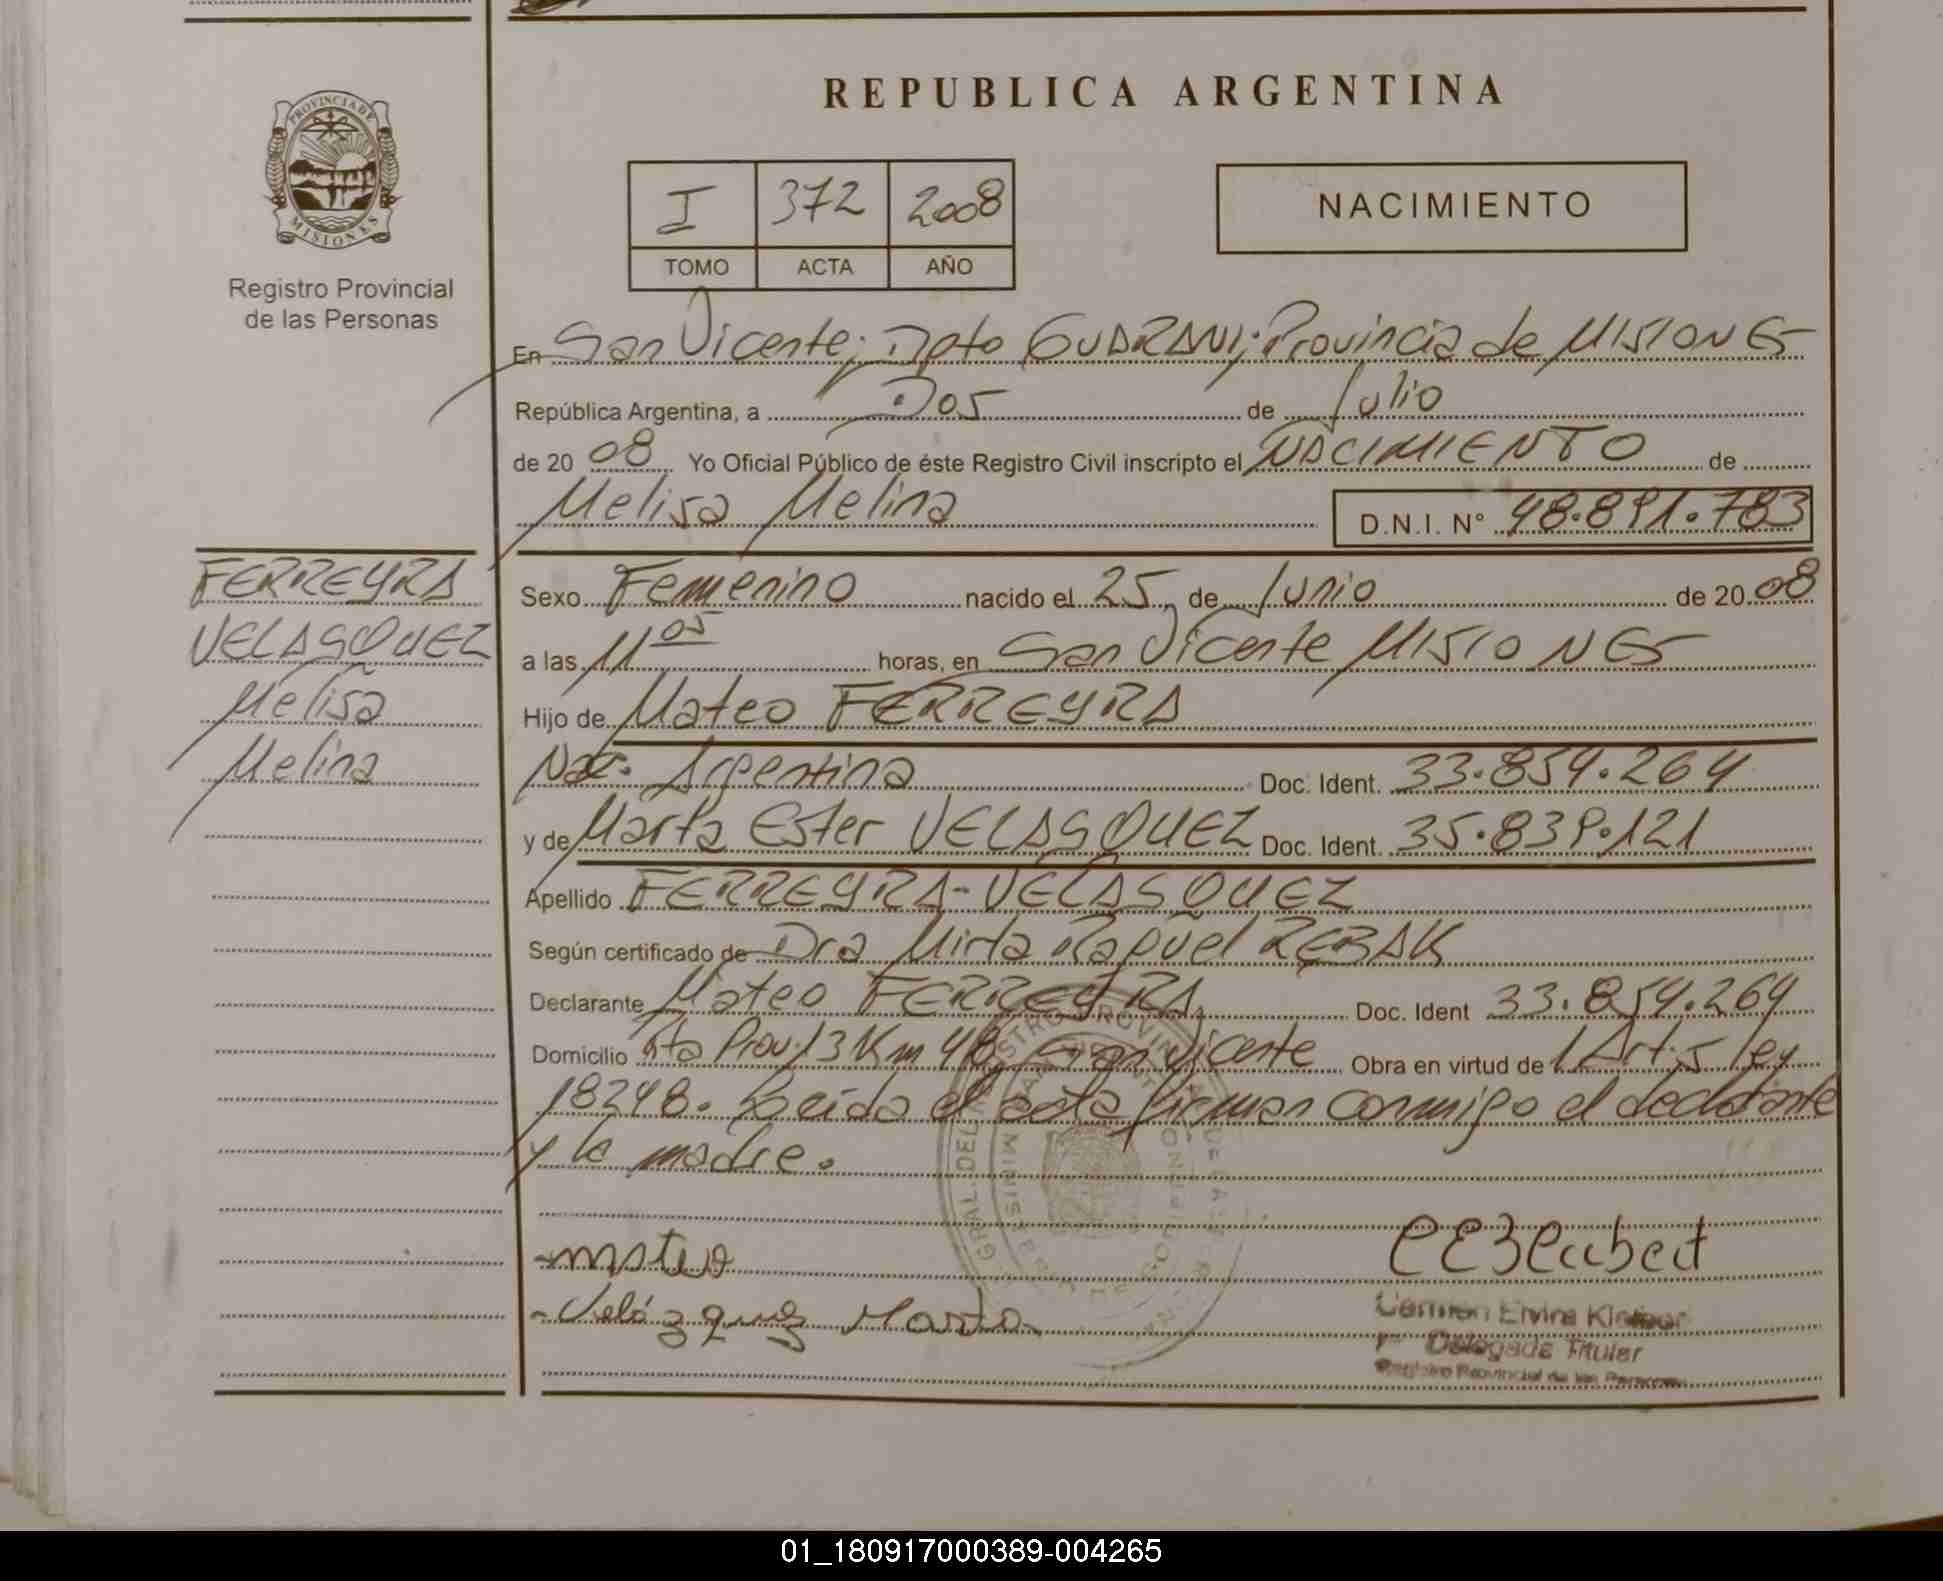 REPUBLICA ARGENTINA
PROVINCIA DE
MISIONES
Registro Provincial
de las Personas
I 372 2008
TOMO ACTA AÑO
NACIMIENTO
En San Vicente; Dpto GUARANI; Provincia de MISIONES
República Argentina, a Dos de Julio
de 20 08 Yo Oficial Público de éste Registro Civil inscripto el NACIMIENTO de
Melisa Melina D.N.I. N° 48.891.783
FERREYRA
VELASQUEZ
Melisa
Melina
Sexo Femenino nacido el 25 de Junio de 20 08
a las 11 05 horas, en San Vicente MISIONES
Hijo de Mateo FERREYRA
Nac. Argentina Doc. Ident. 33.854.264
y de Marta Ester VELASQUEZ Doc. Ident. 35.839.121
Apellido FERREYRA-VELASQUEZ
Según certificado de Dra Mirta Raquel REBAK
Declarante Mateo FERREYRA Doc. Ident 33.854.264
Domicilio Rta Prov. 13 Km 48 San Vicente Obra en virtud de Art. 5 ley
18248. Leída el acta firman conmigo el declarante
y la madre.
-mateo
-Velázquez Marta
Carmen Elvira
Delegada Titular
Registro Provincial de las Personas
01_180917000389-004265